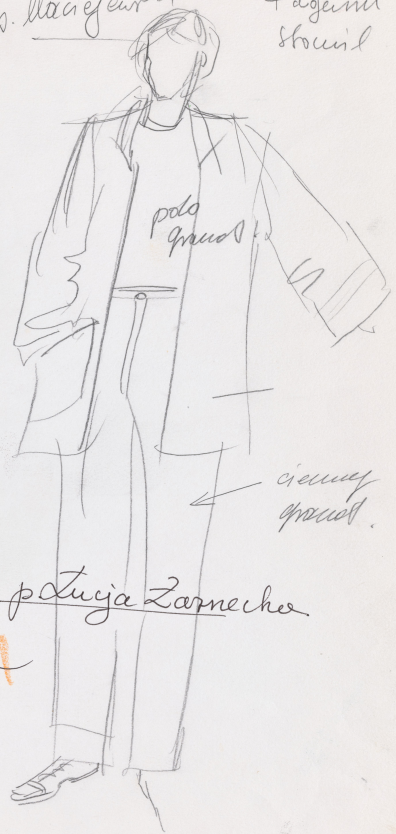 p. Maciejews
Stomil
polo
granat
ciemny
granat.
p Łucja Żarnecka